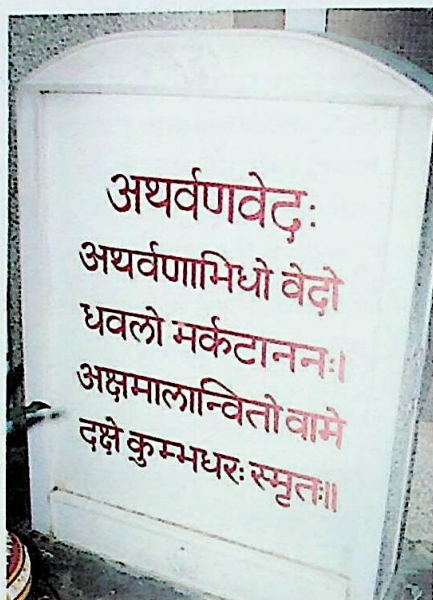 अथर्वणवेदः
अथर्वणाभिधो वेदो
धवलो मर्कटाननः।
अक्षमालान्वितो वामे
दक्षे कुम्भधरः स्मृतः॥